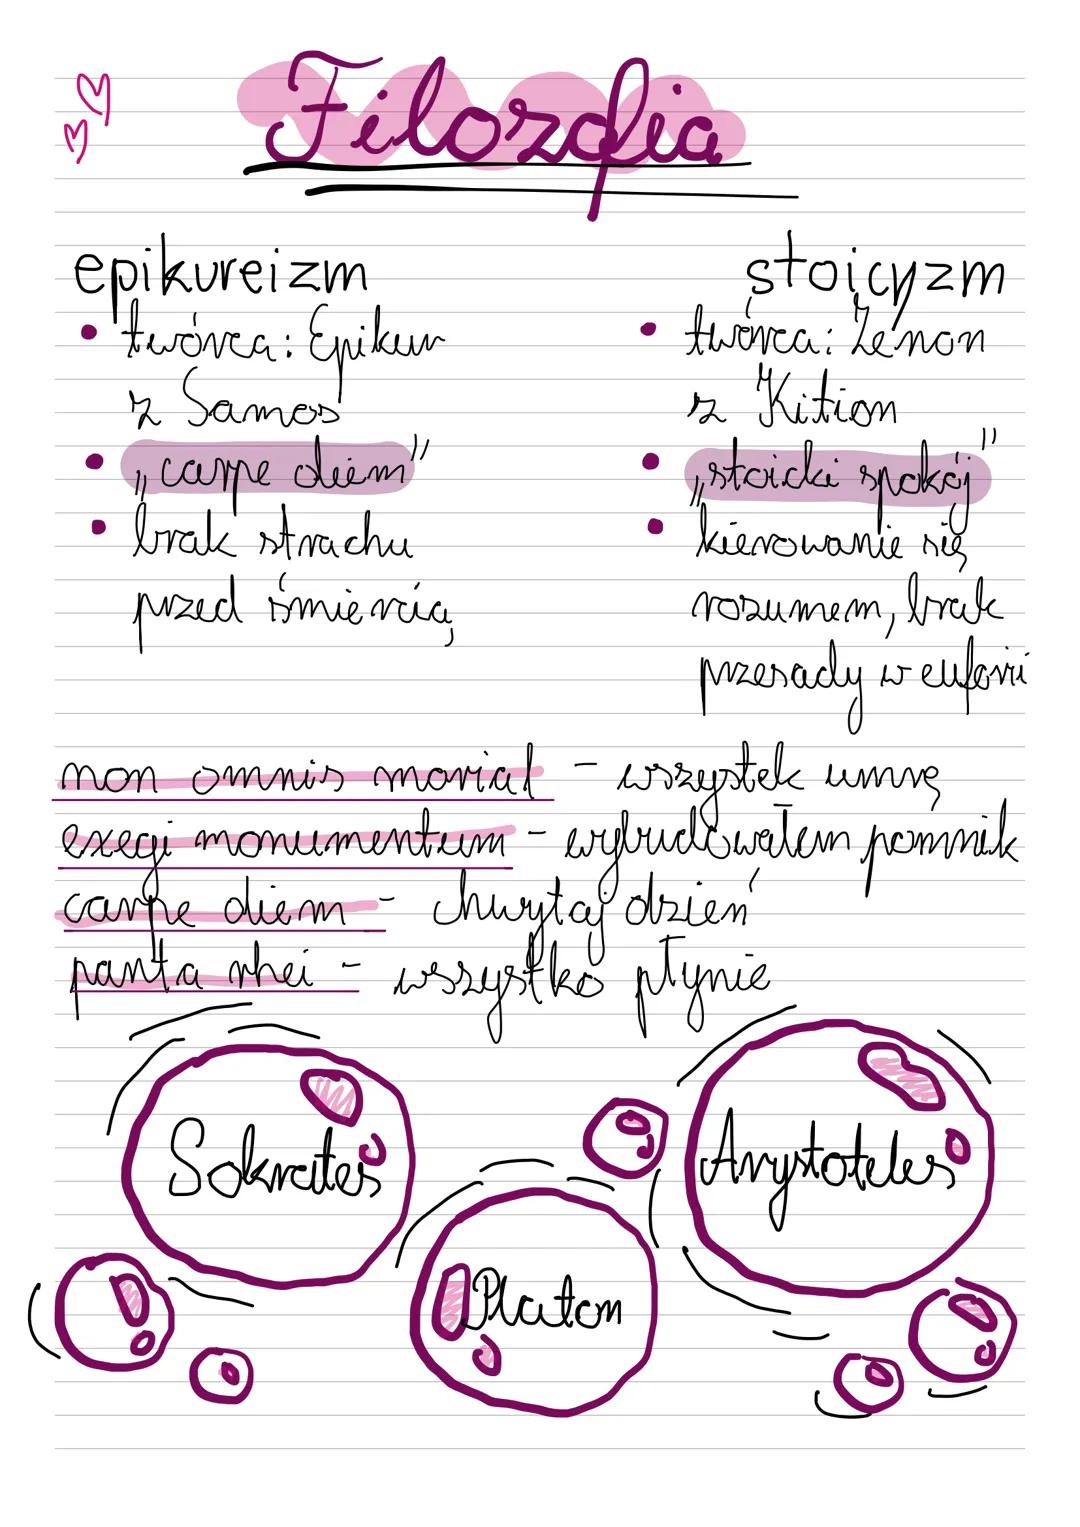 Filozofia
epikureizm
• twórca: Epikur
z Samos
• „carpe diem"
• brak strachu
przed śmiercią
stoicyzm
• twórca: Zenon
z Kition
• „stoicki spokój"
• kierowanie się
rozumem, brak
przesady w euforii
non omnis moriar - wszystek umrę
exegi monumentum - wybudowałem pomnik
carpe diem - chwytaj dzień
panta rhei - wszystko płynie
Sokrates
Arystoteles
Platon